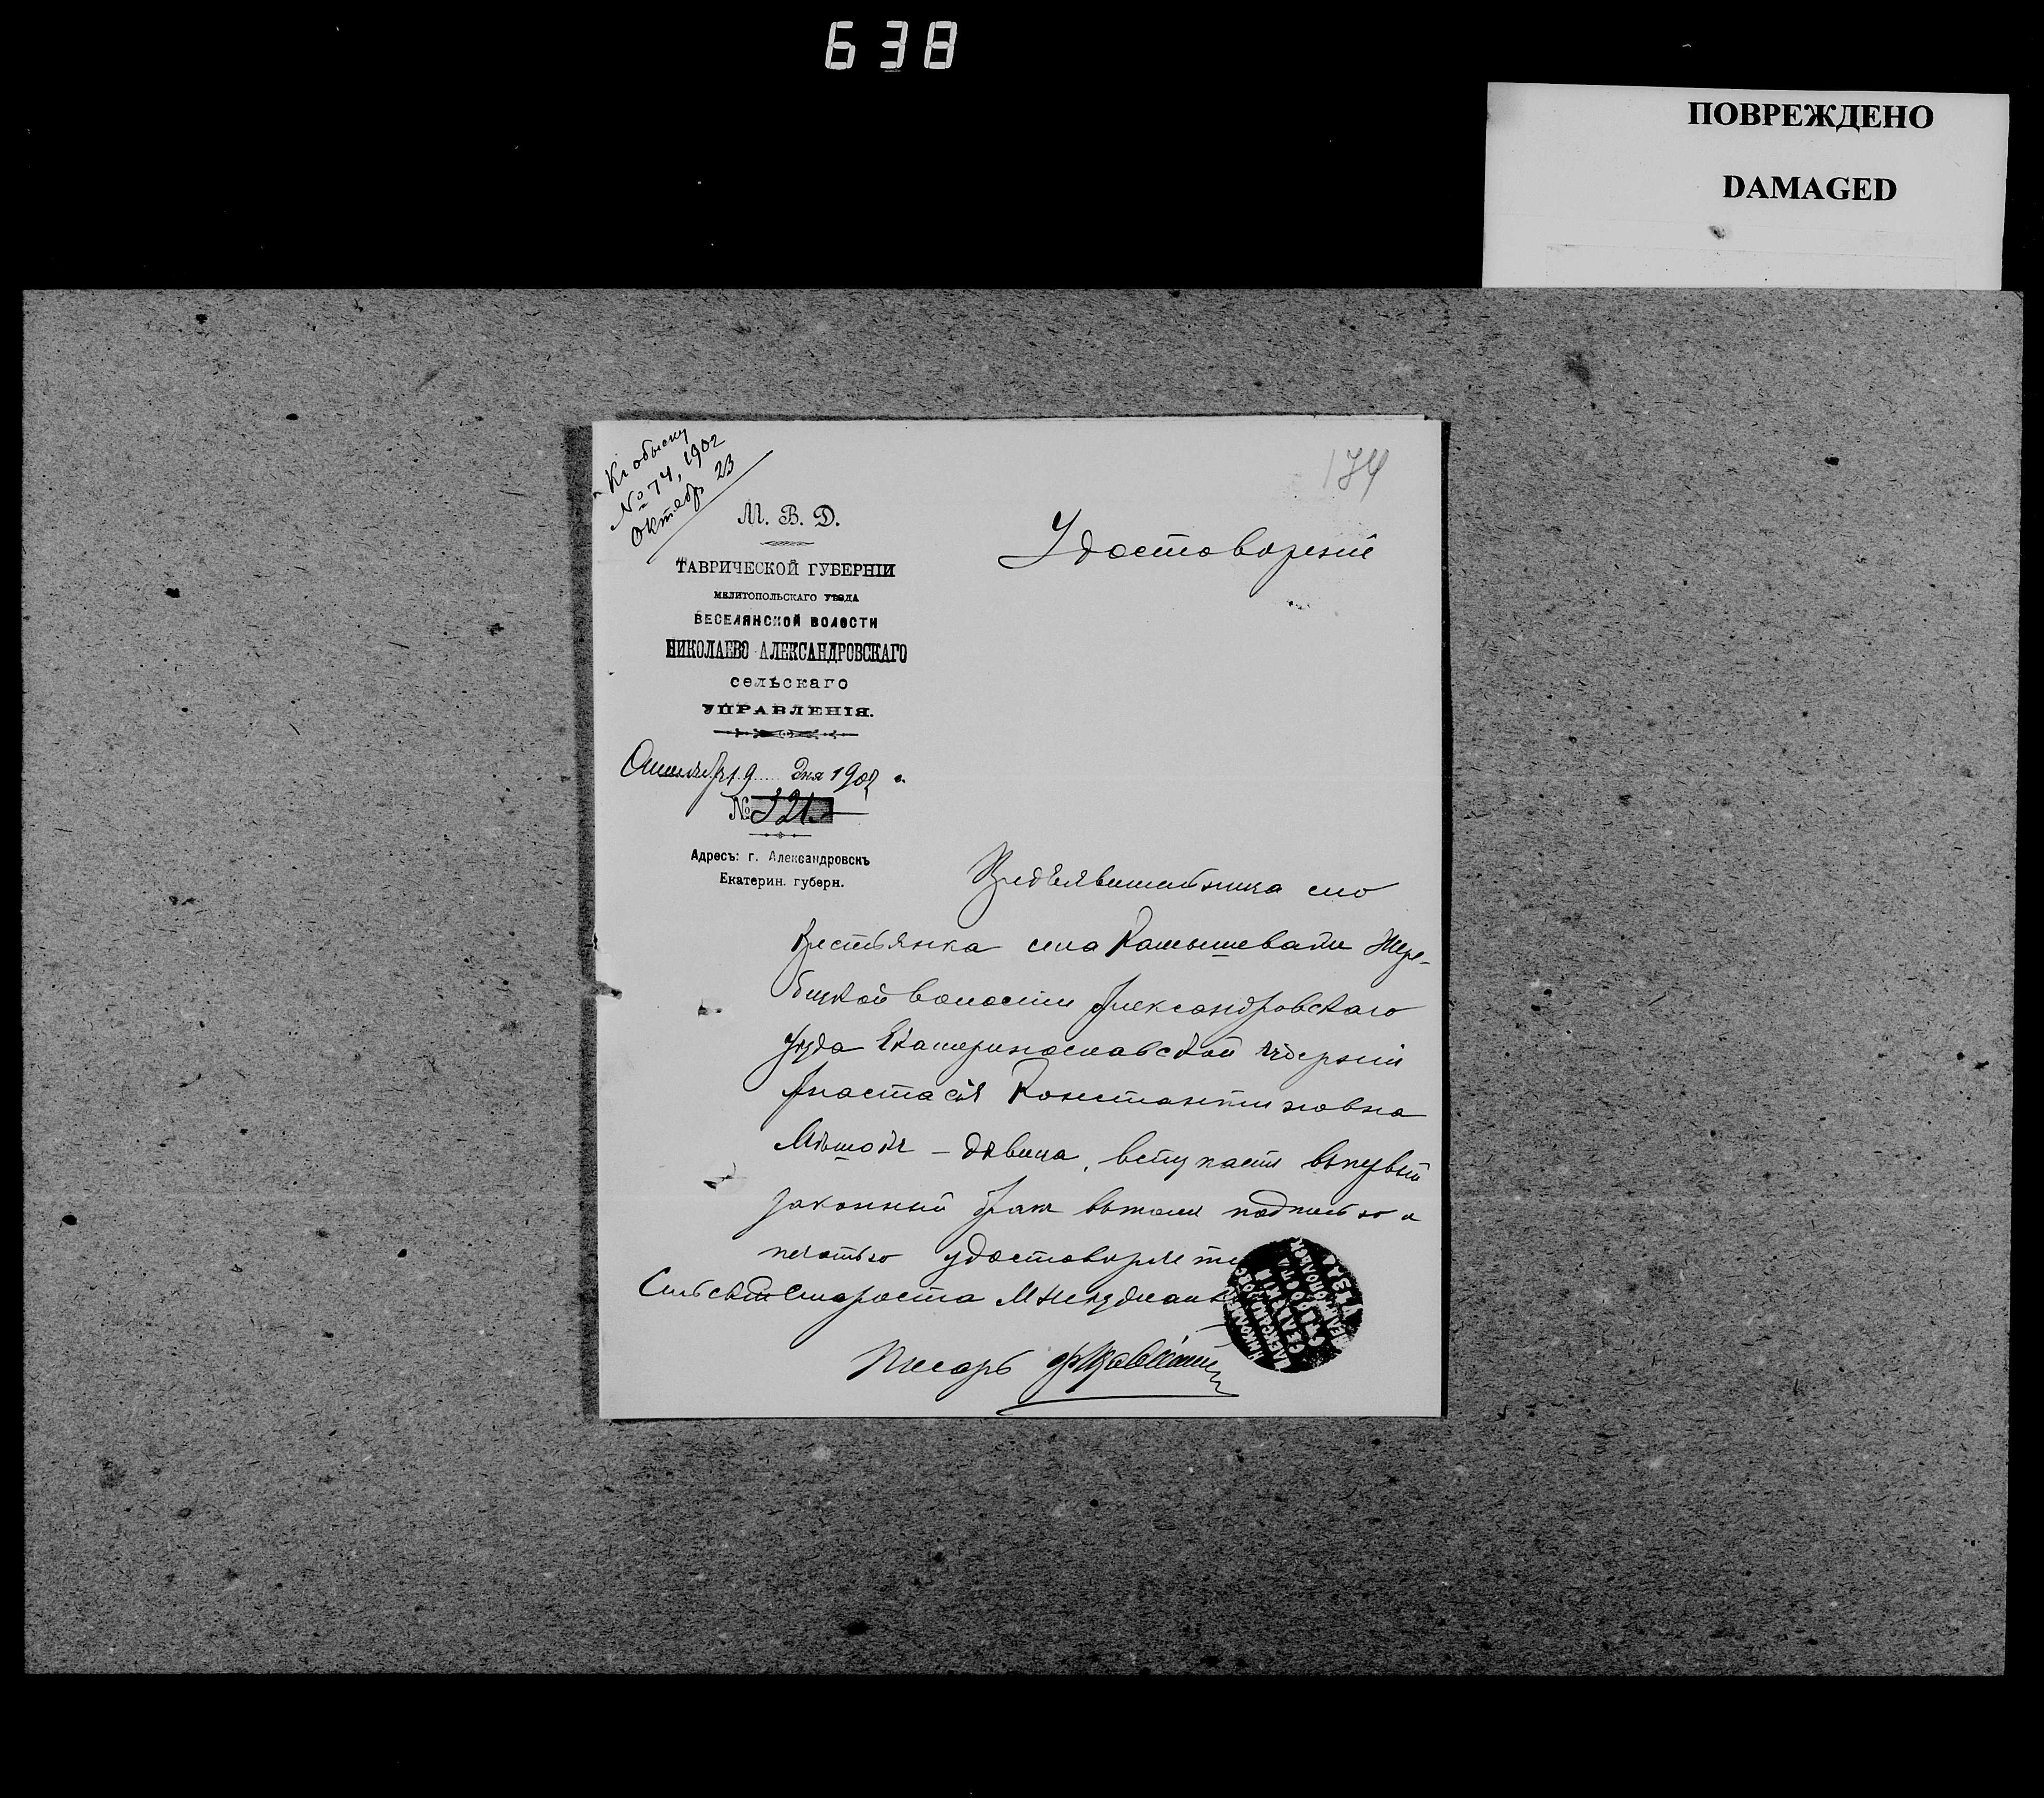 638
ПОВРЕЖДЕНО
DAMAGED
Къ обыску
№ 74, 1902
Октябр 23
174
М. В. Д.
ТАВРИЧЕСКОЙ ГУБЕРНІИ
МЕЛИТОПОЛЬСКАГО УѢЗДА
ВЕСЕЛЯНСКОЙ ВОЛОСТИ
НИКОЛАЕВО АЛЕКСАНДРОВСКАГО
СЕЛЬСКАГО
УПРАВЛЕНІЯ.
Октября 19 дня 1902 г.
№ 321
Адресъ: г. Александровскъ
Екатерин. губерн.
Удостоверенiе
Предъявительница сего
Крестьянка села Камышевати Жере-
бецкой волости Александровскаго
уезда Екатеринославской губернiи
Анастасiя Константиновна
Мѣшокъ - дѣвица, вступаетъ въ первый
законный бракъ въ томъ подписью и
печатью удостоверяетъ
Сельский Староста
Писарь
НИКОЛАЕВО
АЛЕКСАНДРОВС
СЕЛЬСКІЙ
СТАРОСТА
МЕЛИТОПОЛЬСК
УѢЗДА